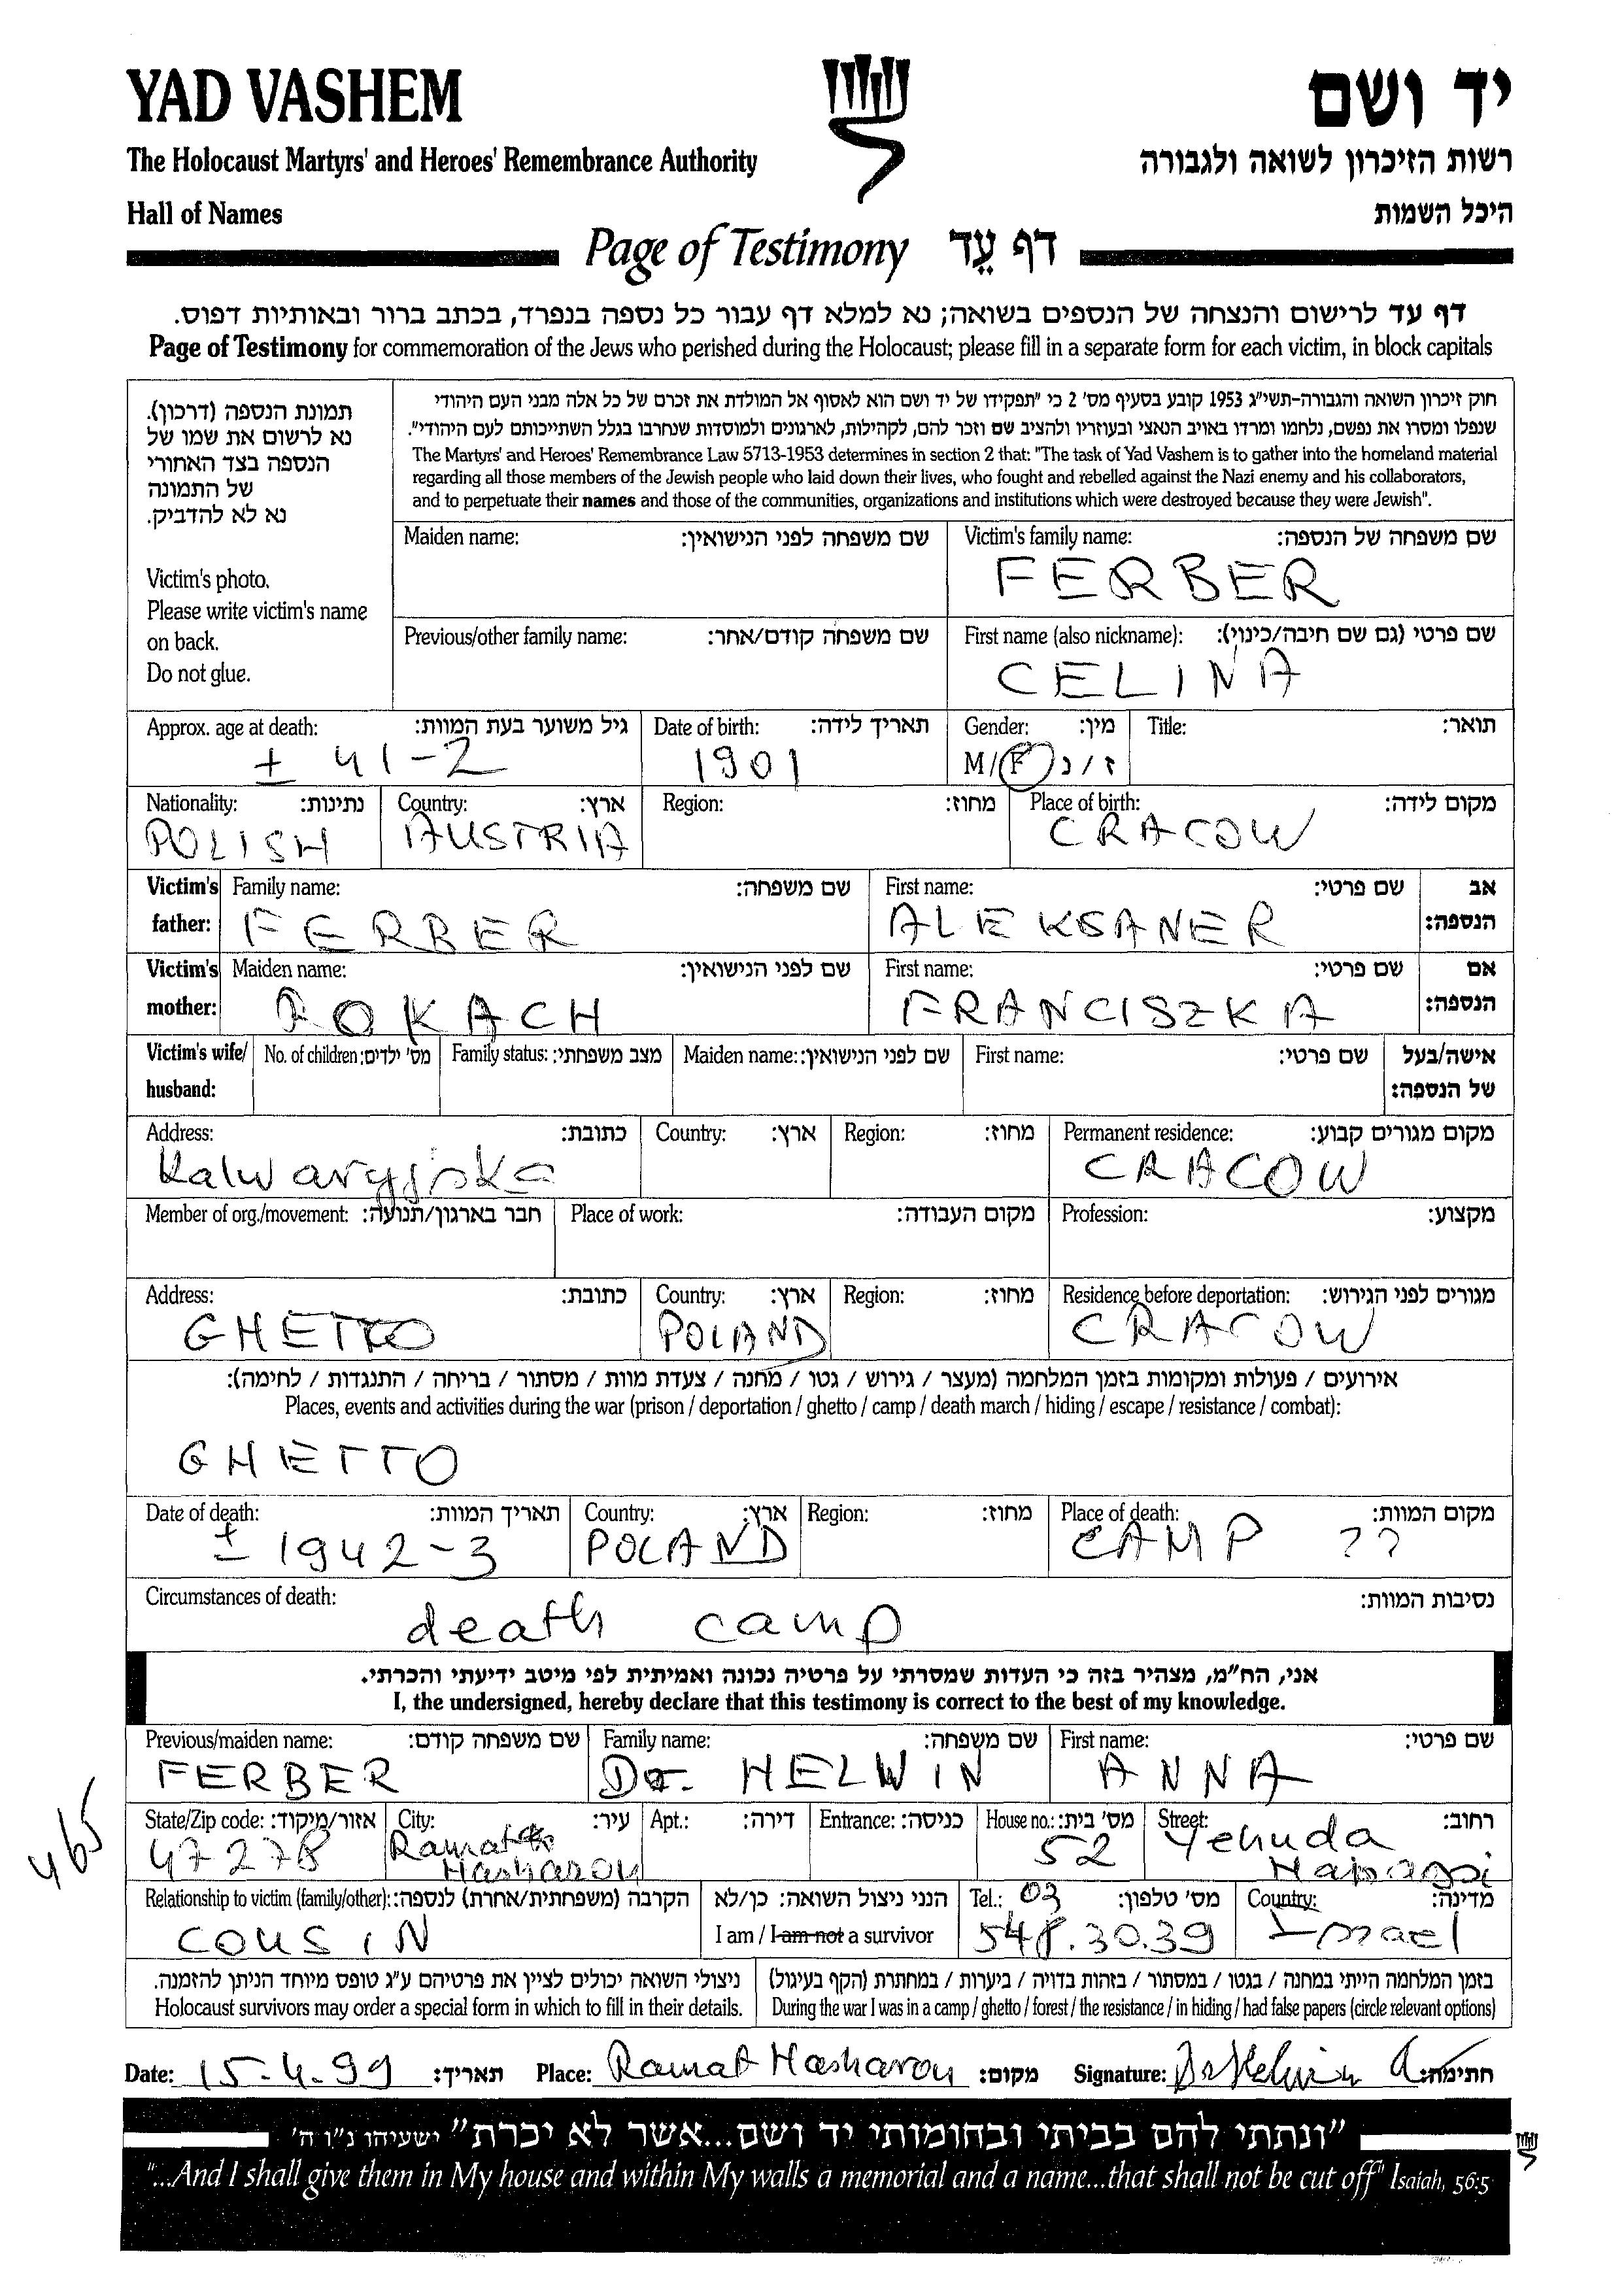 YAD VASHEM
יד ושם
The Holocaust Martyrs' and Heroes' Remembrance Authority
רשות הזיכרון לשואה ולגבורה
Hall of Names
היכל השמות
Page of Testimony דף עֵד
דף עד לרישום והנצחה של הנספים בשואה; נא למלא דף עבור כל נספה בנפרד, בכתב ברור ובאותיות דפוס.
Page of Testimony for commemoration of the Jews who perished during the Holocaust; please fill in a separate form for each victim, in block capitals
תמונת הנספה (דרכון).
נא לרשום את שמו של
הנספה בצד האחורי
של התמונה
נא לא להדביק.
Victim's photo.
Please write victim's name
on back.
Do not glue.
חוק זיכרון השואה והגבורה-תשי"ג 1953 קובע בסעיף מס' 2 כי "תפקידו של יד ושם הוא לאסוף אל המולדת את זכרם של כל אלה מבני העם היהודי
שנפלו ומסרו את נפשם, נלחמו ומרדו באויב הנאצי ובעוזריו ולהציב שם וזכר להם, לקהילות, לארגונים ולמוסדות שנחרבו בגלל השתייכותם לעם היהודי".
The Martyrs' and Heroes' Remembrance Law 5713-1953 determines in section 2 that: "The task of Yad Vashem is to gather into the homeland material
regarding all those members of the Jewish people who laid down their lives, who fought and rebelled against the Nazi enemy and his collaborators,
and to perpetuate their names and those of the communities, organizations and institutions which were destroyed because they were Jewish".
Maiden name: שם משפחה לפני הנישואין:
Victim's family name: שם משפחה של הנספה:
FERBER
Previous/other family name: שם משפחה קודם/אחר:
First name (also nickname): שם פרטי (גם שם חיבה/כינוי):
CELINA
Approx. age at death: גיל משוער בעת המוות:
± 41-2
Date of birth: תאריך לידה:
1901
Gender: מין:
M/F ז/נ
Title: תואר:
Nationality: נתינות:
POLISH
Country: ארץ:
AUSTRIA
Region: מחוז:
Place of birth: מקום לידה:
CRACOW
Victim's father: Family name: שם משפחה:
FERBER
First name: שם פרטי: אב הנספה:
ALEKSANER
Victim's mother: Maiden name: שם לפני הנישואין:
ROKACH
First name: שם פרטי: אם הנספה:
FRANCISZKA
Victim's wife/ husband: No. of children: מס' ילדים: Family status: מצב משפחתי: Maiden name: שם לפני הנישואין: First name: שם פרטי: אישה/בעל של הנספה:
Address: כתובת:
Kalwaryjska
Country: ארץ: Region: מחוז:
Permanent residence: מקום מגורים קבוע:
CRACOW
Member of org./movement: חבר בארגון/תנועה: Place of work: מקום העבודה: Profession: מקצוע:
Address: כתובת:
GHETTO
Country: ארץ:
POLAND
Region: מחוז:
Residence before deportation: מגורים לפני הגירוש:
CRACOW
אירועים / פעולות ומקומות בזמן המלחמה (מעצר / גירוש / גטו / מחנה / צעדת מוות / מסתור / בריחה / התנגדות / לחימה):
Places, events and activities during the war (prison / deportation / ghetto / camp / death march / hiding / escape / resistance / combat):
GHETTO
Date of death: תאריך המוות:
± 1942-3
Country: ארץ:
POLAND
Region: מחוז:
Place of death: מקום המוות:
CAMP ??
Circumstances of death: נסיבות המוות:
death camp
אני, הח"מ, מצהיר בזה כי העדות שמסרתי על פרטיה נכונה ואמיתית לפי מיטב ידיעתי והכרתי.
I, the undersigned, hereby declare that this testimony is correct to the best of my knowledge.
Previous/maiden name: שם משפחה קודם:
FERBER
Family name: שם משפחה:
Dr. HELWIN
First name: שם פרטי:
ANNA
465
State/Zip code: אזור/מיקוד:
47278
City: עיר:
Ramat
Hasharon
Apt.: דירה: Entrance: כניסה:
House no.: מס' בית:
52
Street: רחוב:
Yehuda
Hanassi
Relationship to victim (family/other): הקרבה (משפחתית/אחרת) לנספה:
COUSIN
הנני ניצול השואה: כן/לא
I am / I am not a survivor
Tel.: מס' טלפון:
03
548.30.39
Country: מדינה:
Israel
ניצולי השואה יכולים לציין את פרטיהם ע"ג טופס מיוחד הניתן להזמנה.
Holocaust survivors may order a special form in which to fill in their details.
בזמן המלחמה הייתי במחנה / בגטו / במסתור / בזהות בדויה / ביערות / במחתרת (הקף בעיגול)
During the war I was in a camp / ghetto / forest / the resistance / in hiding / had false papers (circle relevant options)
Date: 15.4.99 תאריך: Place: Ramat Hasharon מקום: Signature: Dr Helwin A חתימה:
"ונתתי להם בביתי ובחומותי יד ושם...אשר לא יכרת" ישעיהו נ"ו ה'
"...And I shall give them in My house and within My walls a memorial and a name...that shall not be cut off" Isaiah, 56:5